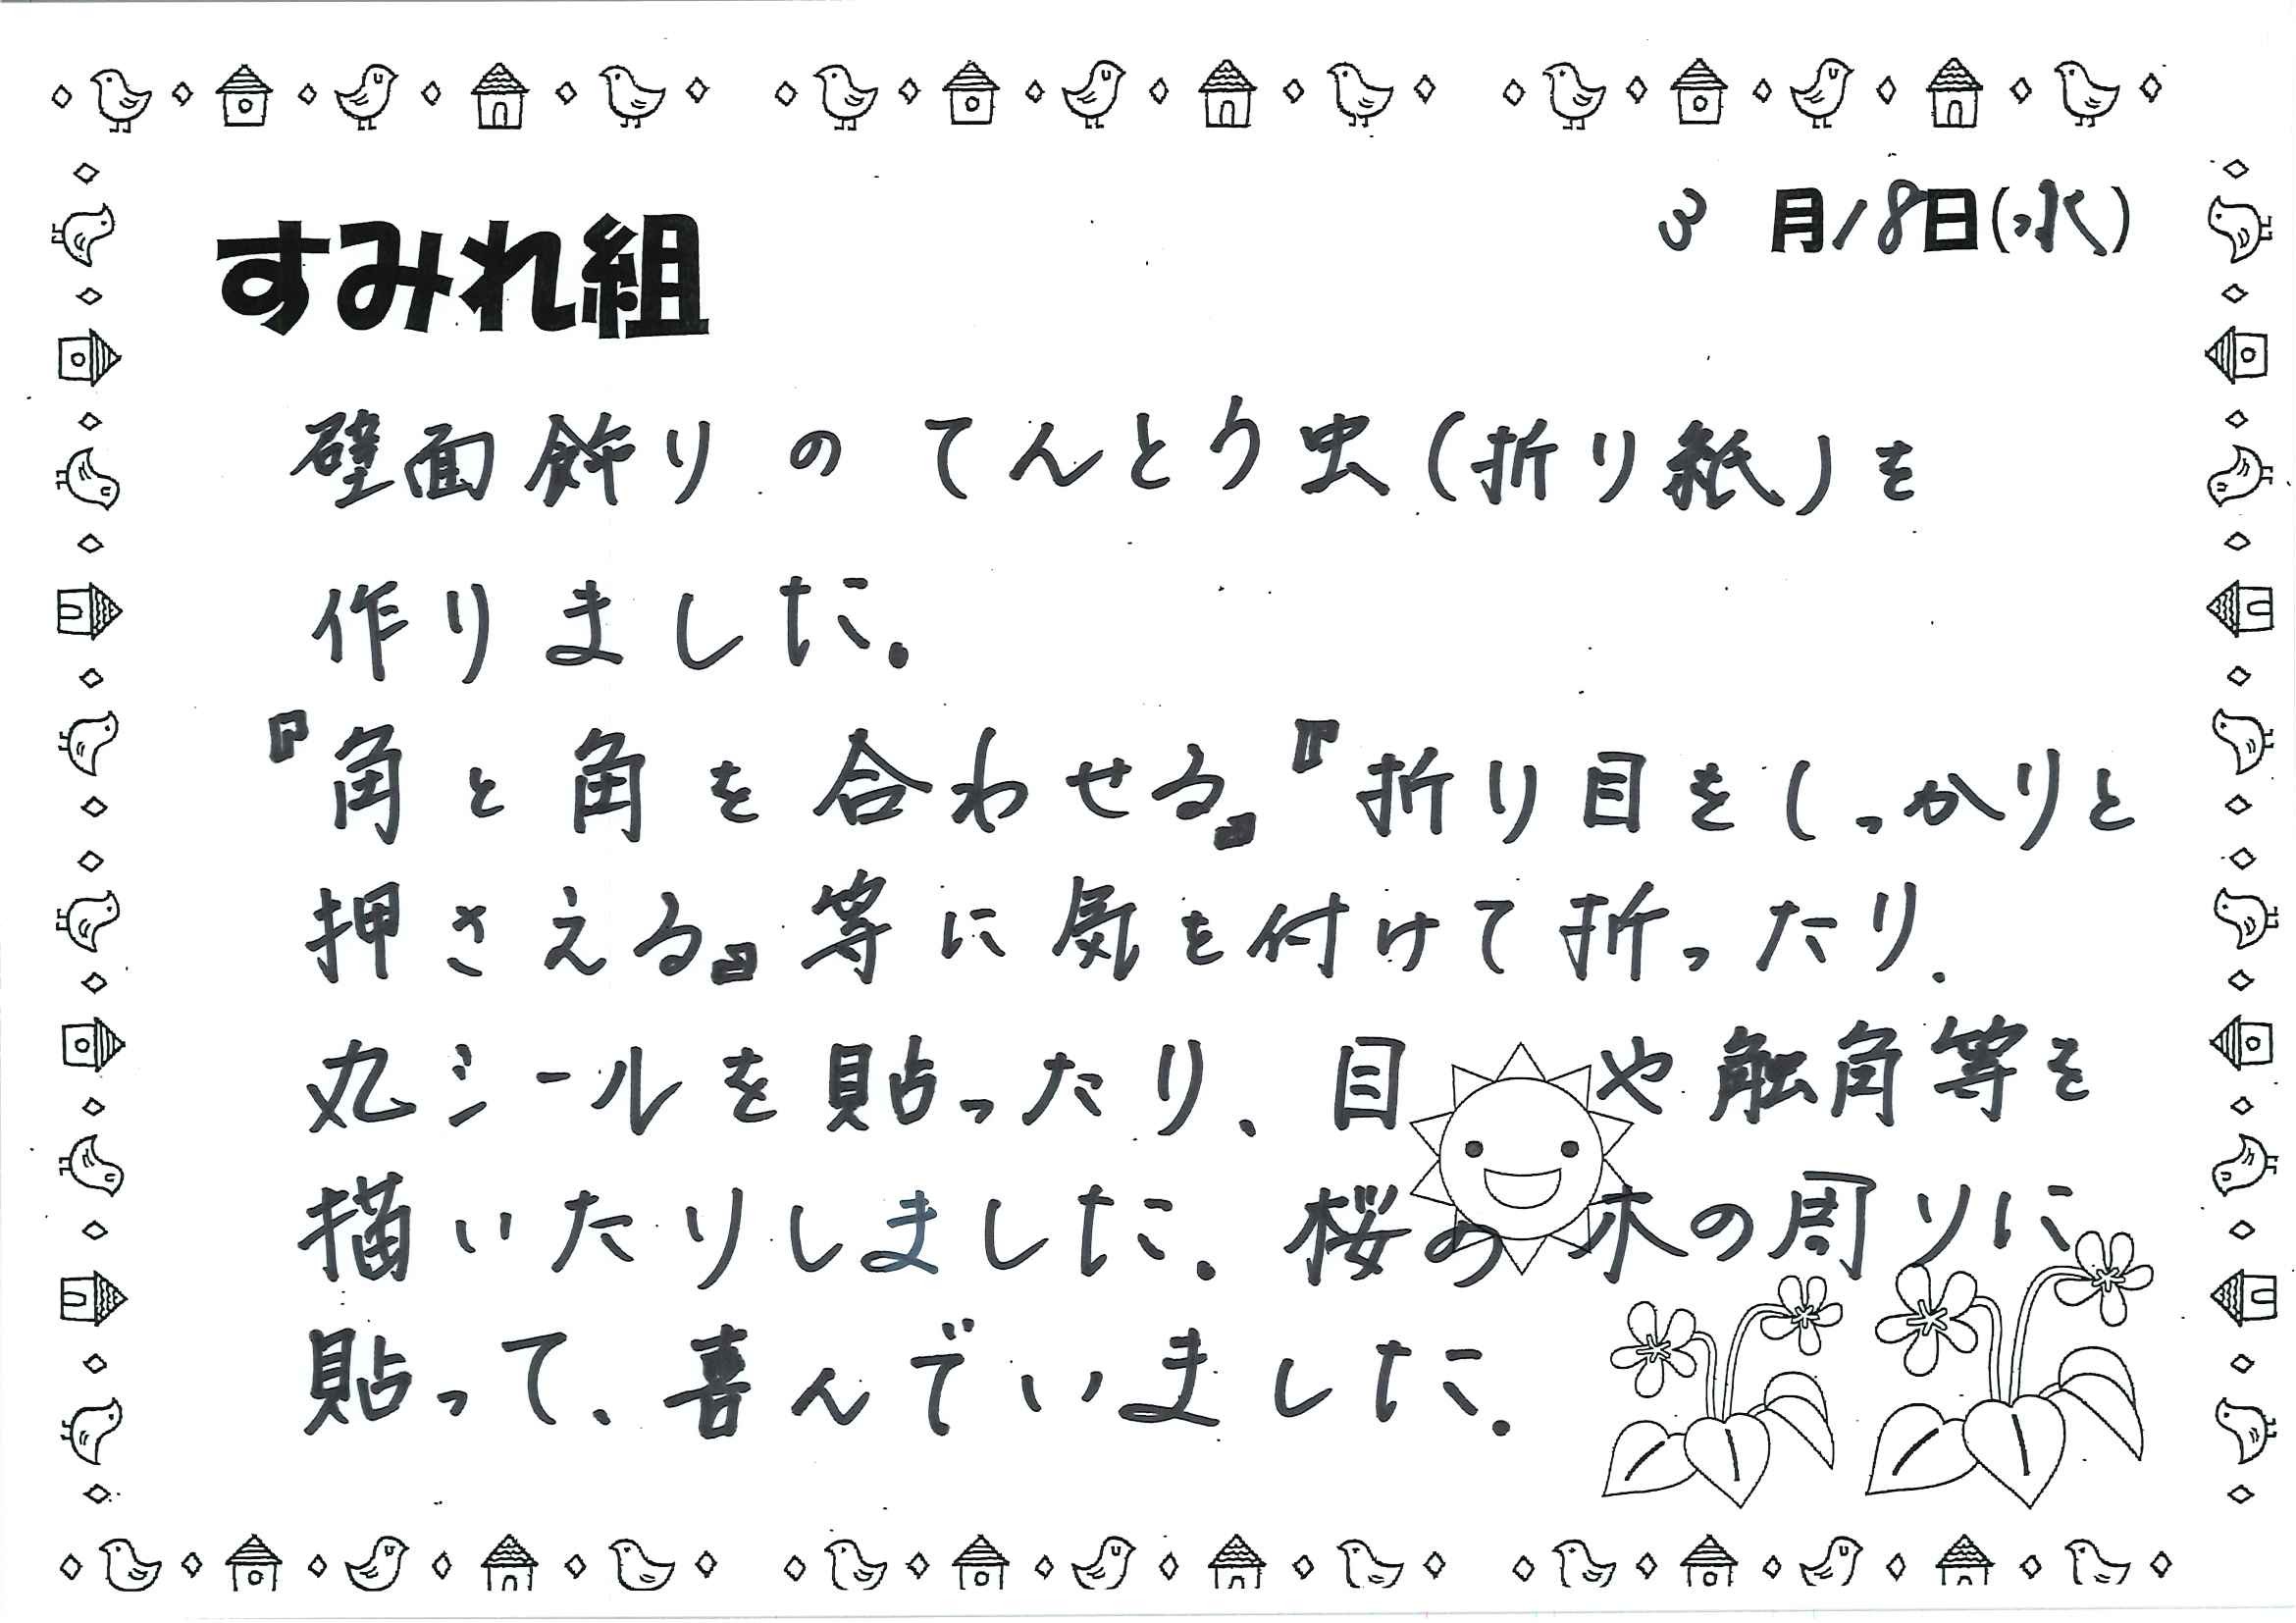 3月18日(水)
すみれ組
壁面飾りのてんとう虫(折り紙)を
作りました。
『角と角を合わせる』『折り目をしっかりと
押さえる』等に気を付けて折ったり、
丸シールを貼ったり、目や触角等を
描いたりしました。桜の木の周りに
貼って、喜んでいました。